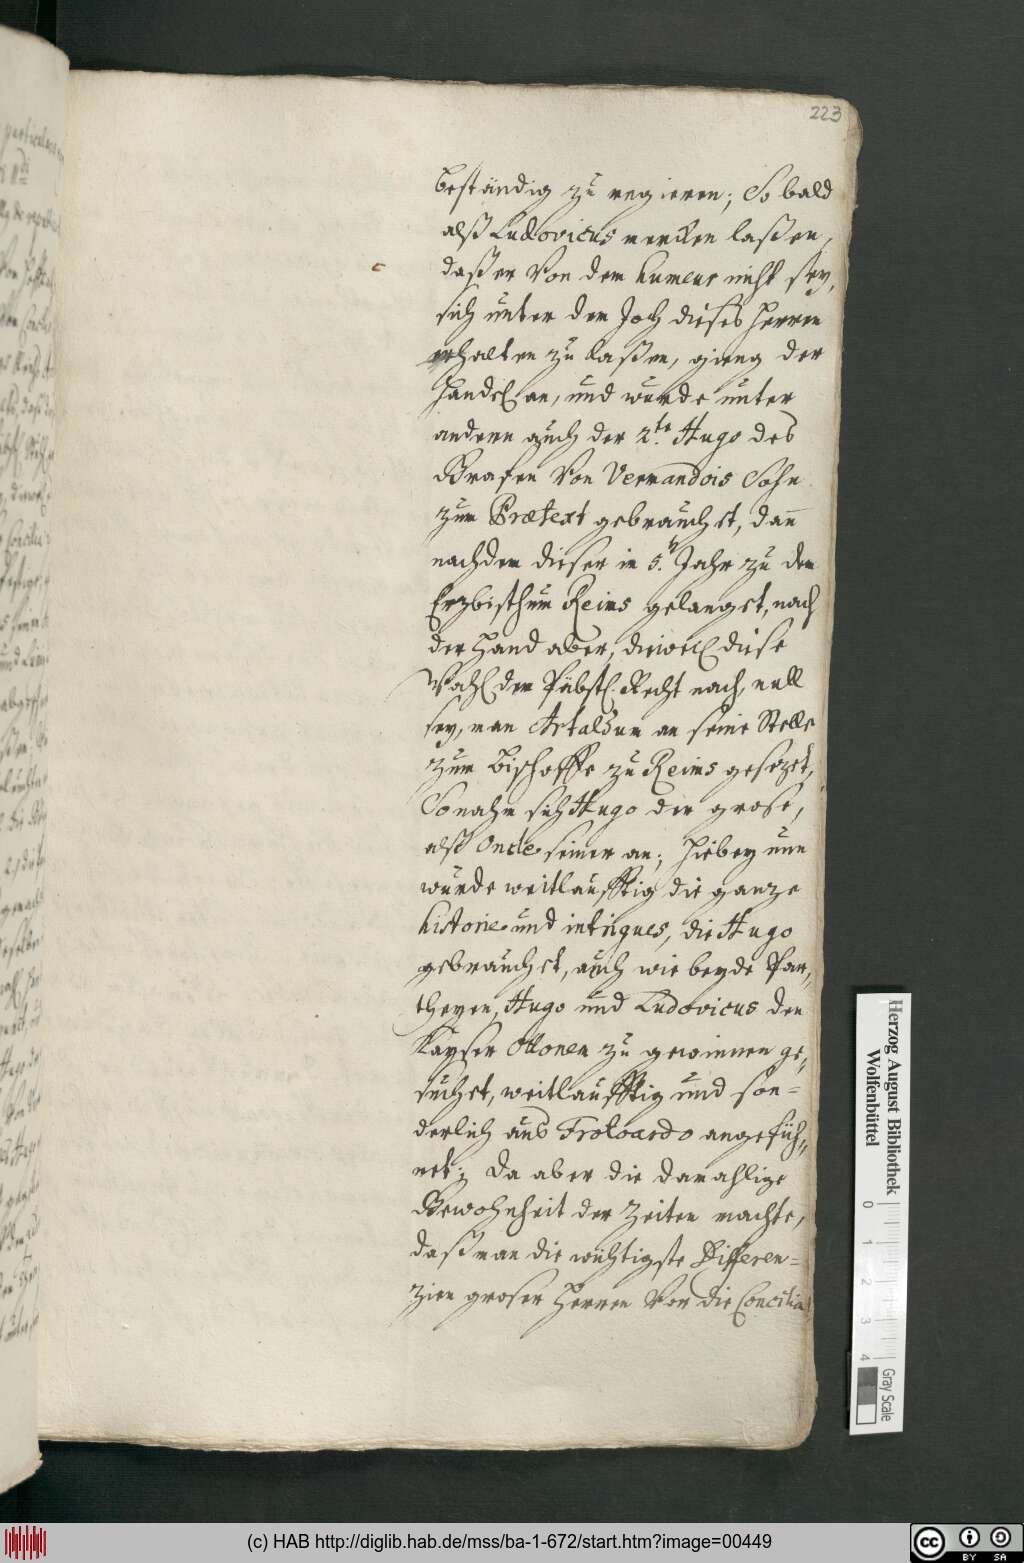 223
beständig zu regieren; So bald
alß Ludovicus mercken laßen,
daß er von dem humeur nicht sey,
sich unter dem Joch dieses Herren
erhalten zu laßen, gieng der
Handel an, und wurde unter
andern auch der 2.te Hugo des
Grafen von Vermandois Sohn
zum Prætext gebrauchet, dan̅
nachdem dieser im 5.n Jahr zu dem
Erzbisthum Reims gelanget, nach
der Hand aber, dieweil diese
Wahl dem Päbstl. Recht nach, null
sey, man Artaldum an seine Stelle
zum Bischoffe zu Reims gesezet,
So nahm sich Hugo der grose,
alß Oncle seiner an; Hiebey nun
wurde weitläufftig die ganze
historie und intrigues, die Hugo
gebrauchet, auch wie beyde Par-
theyen, Hugo und Ludovicus den
Kayser Ottonem zu gewinnen ge-
suchet, weitläufftig und son-
derlich aus Frodoardo angefüh-
ret; Da aber die damahlige
Gewohnheit der Zeiten machte,
daß man die wichtigste Differen-
zien groser Herren vor die Concilia
Herzog August Bibliothek
Wolfenbüttel
0 1 2 3 4
Gray Scale
(c) HAB http://diglib.hab.de/mss/ba-1-672/start.htm?image=00449
cc BY SA